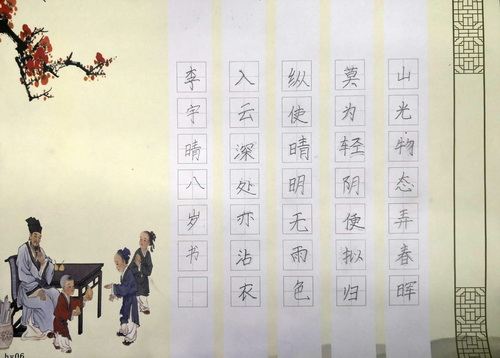 山光物态弄春晖
莫为轻阴便拟归
纵使晴明无雨色
入云深处亦沾衣
李宇晴八岁书
hx06